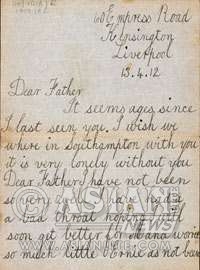 60 Empress Road
Kensington
Liverpool
13.4.12
Dear Father
It seems ages since
I last seen you. I wish we
where in Southampton with you
it is very lonely without you
Dear Father I have not been
so very have had
a bad throat hoping will
soon get better for
so much little as not been